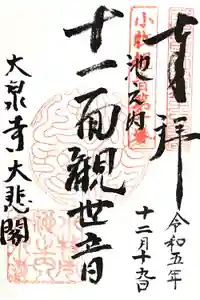 奉拝
令和五年
十二月十九日
池之内
十一面觀世音
大泉寺大悲閣